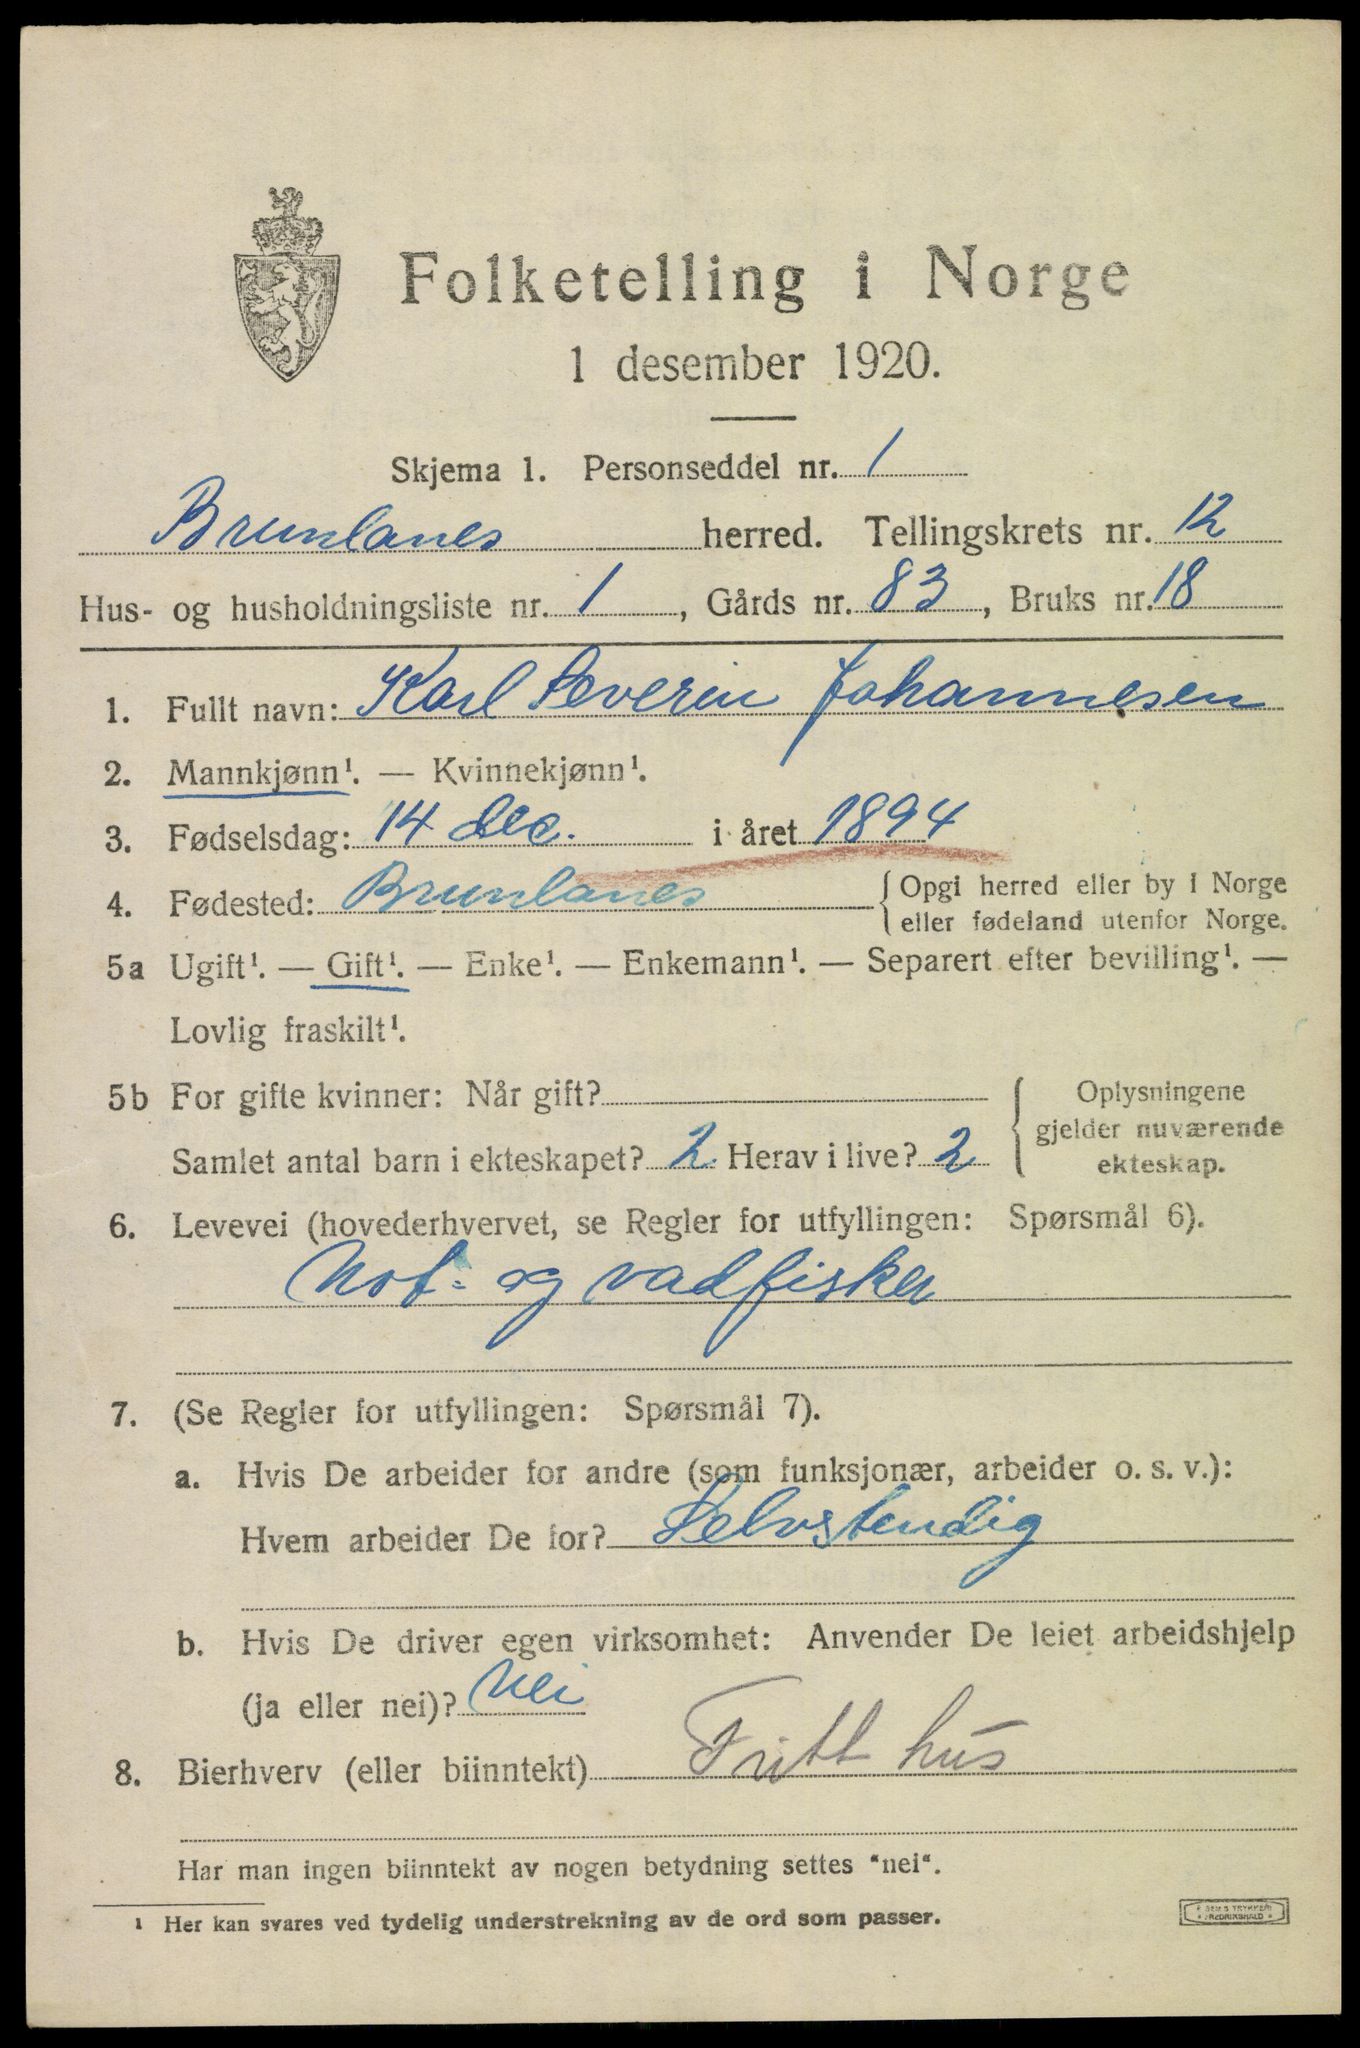 Folketelling i Norge
1 desember 1920.
Skjema 1. Personseddel nr. 1
Brunlanes herred. Tellingskrets nr. 12
Hus- og husholdningsliste nr. 1, Gårds nr. 83, Bruks nr. 18
1. Fullt navn: Karl Severin Johannesen
2. Mannkjønn¹. — Kvinnekjønn¹.
3. Fødselsdag: 14 dec. i året 1894
4. Fødested: Brunlanes { Opgi herred eller by i Norge
eller fødeland utenfor Norge.
5a Ugift¹. — Gift¹. — Enke¹. — Enkemann¹. — Separert efter bevilling¹. —
Lovlig fraskilt¹.
5b For gifte kvinner: Når gift? { Oplysningene
gjelder nuværende
Samlet antal barn i ekteskapet? 2. Herav i live? 2 ekteskap.
6. Levevei (hovederhvervet, se Regler for utfyllingen: Spørsmål 6).
Not- og vadfisker
7. (Se Regler for utfyllingen: Spørsmål 7).
a. Hvis De arbeider for andre (som funksjonær, arbeider o. s. v.):
Hvem arbeider De for? Selvstendig
b. Hvis De driver egen virksomhet: Anvender De leiet arbeidshjelp
(ja eller nei)? Nei
8. Bierhverv (eller biinntekt) Fritt hus
Har man ingen biinntekt av nogen betydning settes "nei".
¹ Her kan svares ved tydelig understrekning av de ord som passer.